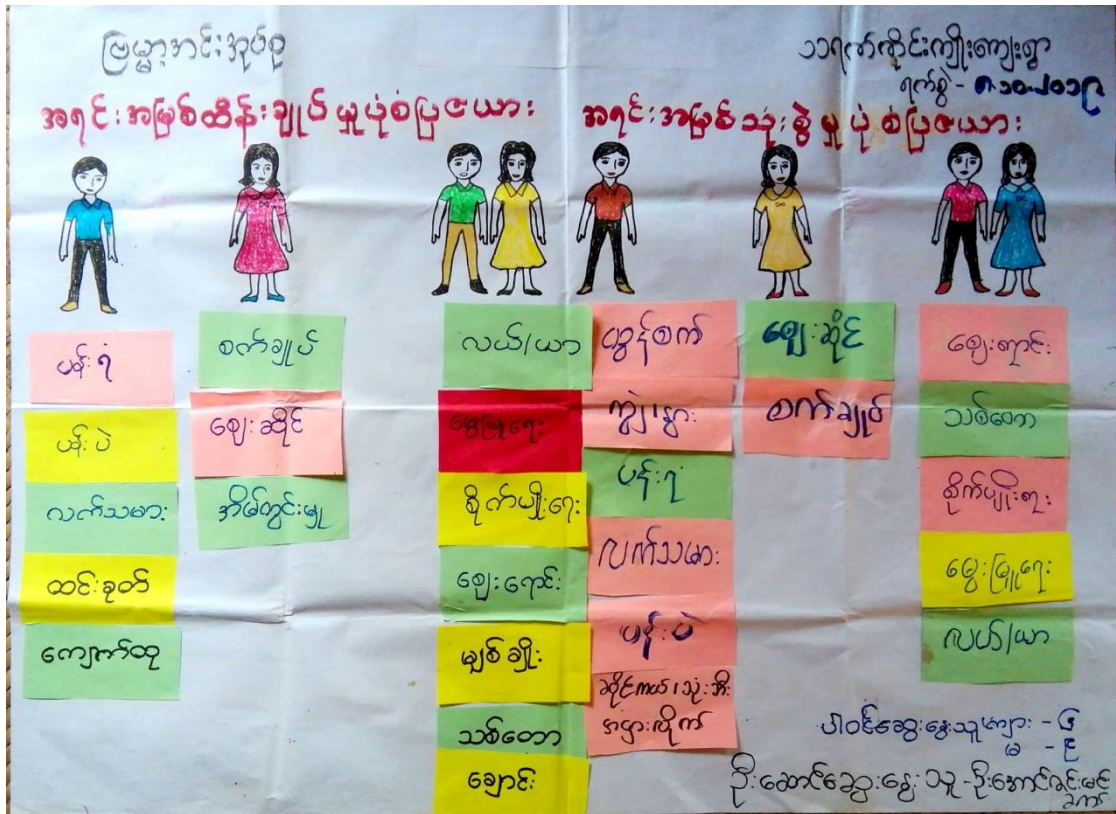 ဗြမ္မာ့အင်းအုပ်စု
ကိုင်းကျိုးကျေးရွာ
ရက်စွဲ - ၈.၁၀.၂၀၁၉
အရင်းအမြစ်ထိန်းချုပ်မှုပုံစံပြဇယား
အရင်းအမြစ်သုံးစွဲမှုပုံစံပြဇယား
ပန်းရံ
ပန်းပဲ
လက်သမား
ထင်းခုတ်
ကျောက်ထု
စက်ချုပ်
ဈေးဆိုင်
အိမ်တွင်းမှု
လယ်/ယာ
မွေးမြူရေး
စိုက်ပျိုးရေး
ဈေးရောင်း
မျှစ်ချိုး
သစ်တော
ချောင်း
ထွန်စက်
ကျွဲ၊နွား
ပန်းရံ
လက်သမား
ပန်းပဲ
ဆိုင်ကယ်၊သုံးဘီး
အငှားလိုက်
ဈေးဆိုင်
စက်ချုပ်
ဈေးရောင်း
သစ်တော
စိုက်ပျိုးရေး
မွေးမြူရေး
လယ်/ယာ
ပါဝင်ဆွေးနွေးသူ ကျား - ၆
မ - ၉
ဦးဆောင်ဆွေးနွေးသူ - ဦးအောင်ခင်မင်